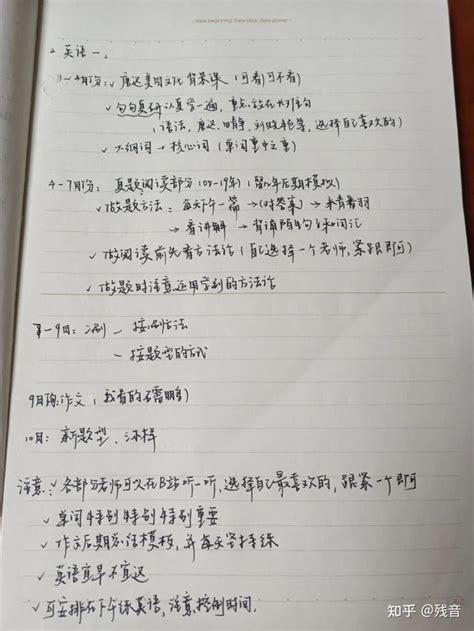 - New beginning, New idea, New power -
2. 英语一.
1~4月份: ✓ 唐迟美国文化背景课 (可看可不看)
✓ 句句真研认真学一遍, 重点放在长难句
(语法, 唐迟、田静、刘晓艳等, 选择自己喜欢的)
✓ 大纲词→核心词 (单词重中之重)
4-7月份: 真题阅读部分 (00-19年) (留几年后期模拟)
✓ 做题方法: 每天下午一篇 → (对答案) →
→ 看讲解 → 背诵陌生句子和词汇
✓ 做阅读前先看方法论 (自己选择一个老师, 紧跟即可)
✓ 做题时注意运用学到的方法论
8-9月: 二刷 — 按 方法
— 按题型的方式
9月 作文 (我看的石雷鹏)
10月: 新题型、
注意: ✓ 各部分老师可以在B站听一听, 选择自己最喜欢的, 跟紧一个即可
✓ 单词特别特别特别重要
✓ 作文后期总结模板, 并每天坚持练
✓ 英语宜早不宜迟
✓ 可安排在下午练英语, 注意控制时间.
知乎 @残音